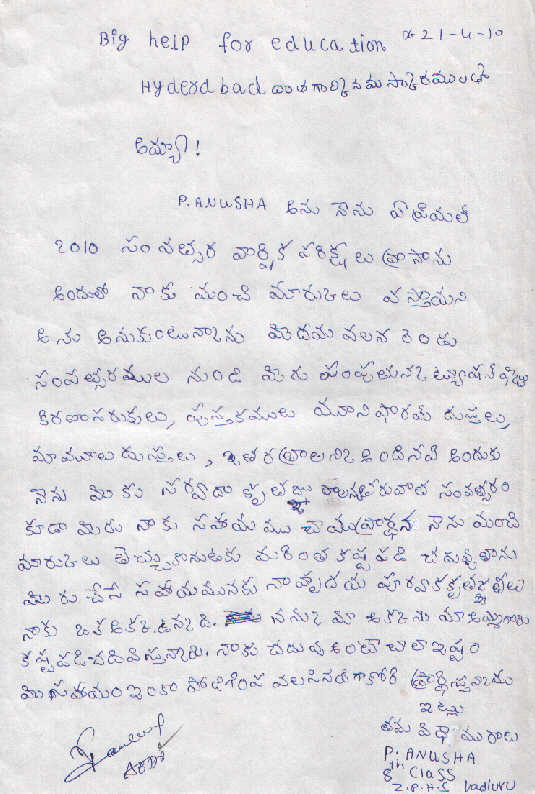 Big help for education 21-4-10
Hyderdbad దాత గార్కి నమస్కారములతో
అయ్యా!
P. ANUSHA అను నేను ఏప్రియల్
2010 సంవత్సర వార్షిక పరిక్ష లు వ్రాసాను
అందులో నాకు మంచి మారుకులు వస్తాయని
అను అనుకుంటున్నాను మొదట వలన రెండు
సంవత్సరముల నుండి మీరు పంపుచున్న ట్యూషన్ ఫీజు
కిరాణాసరుకులు, పుస్తకములు యూనిఫారమ్ దుస్తులు,
మామూలు దుస్తులు, ఇతర అందినవి అందుకు
నేను మీకు సర్వదా కృతజ్ఞు సంవత్సరం
కూడా మీరు నాకు సహాయము నేను మంచి
మారుకులు తెచ్చుకొనుటకు మరింత కష్ట పడి చదువుతాను
మీరు చేసే సహాయమునకు నా హృదయ పూర్వక కృతజ్ఞతలు
నాకు ఒక అక్క ఉన్నది. నన్ను మా అక్కను మా అమ్మగారు
కష్ట పడి చదివిస్తున్నారు. నాకు చదువు అంటే చాలా ఇష్టం
మీ సహాయం ఇంకా వలసినదిగా కోరి ప్రార్థిస్తున్నాను
ఇట్లు
తమ విధేయురాలు
P. ANUSHA
8th class
Z.P.H.S Vadluru